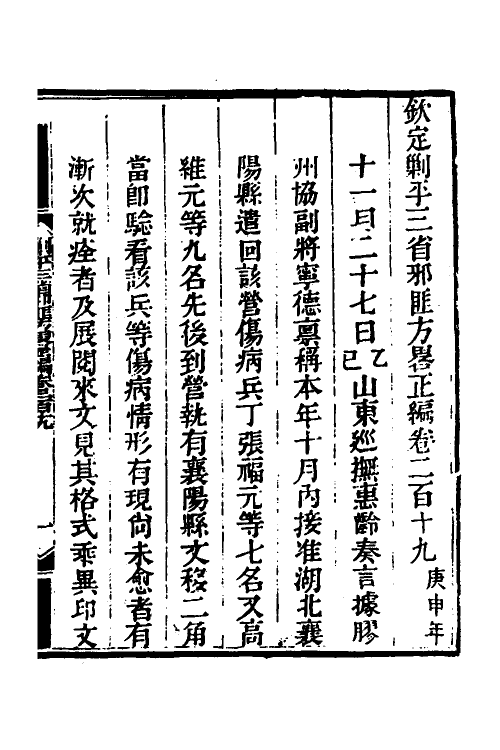 欽定剿平三省邪匪方畧正編卷二百十九 庚申年
十一月二十七日乙巳山東巡撫惠齡奏言據膠
州協副將寧德禀稱本年十月內接准湖北襄
陽縣遣回該營傷病兵丁張福元等七名又高
維元等九名先後到營執有襄陽縣文移二角
當即騐看該兵等傷病情形有現尚未愈者有
漸次就痊者及展閱來文見其格式乖異印文